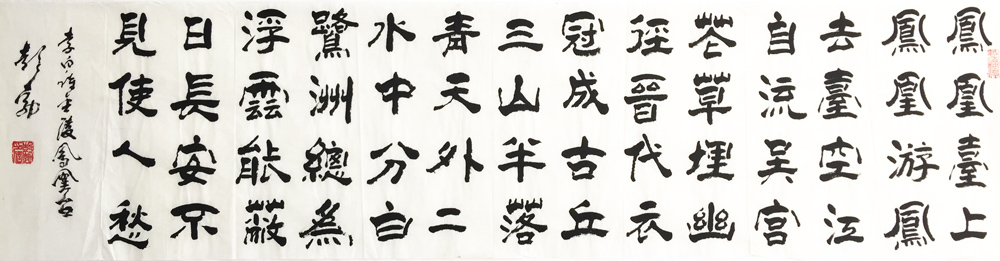 鳳凰臺上
鳳凰游鳳
去臺空江
自流吴宫
花草埋幽
径晉代衣
冠成古丘
三山半落
青天外二
水中分白
鷺洲總為
浮雲能蔽
日長安不
見使人愁
李白詩金陵鳳凰台